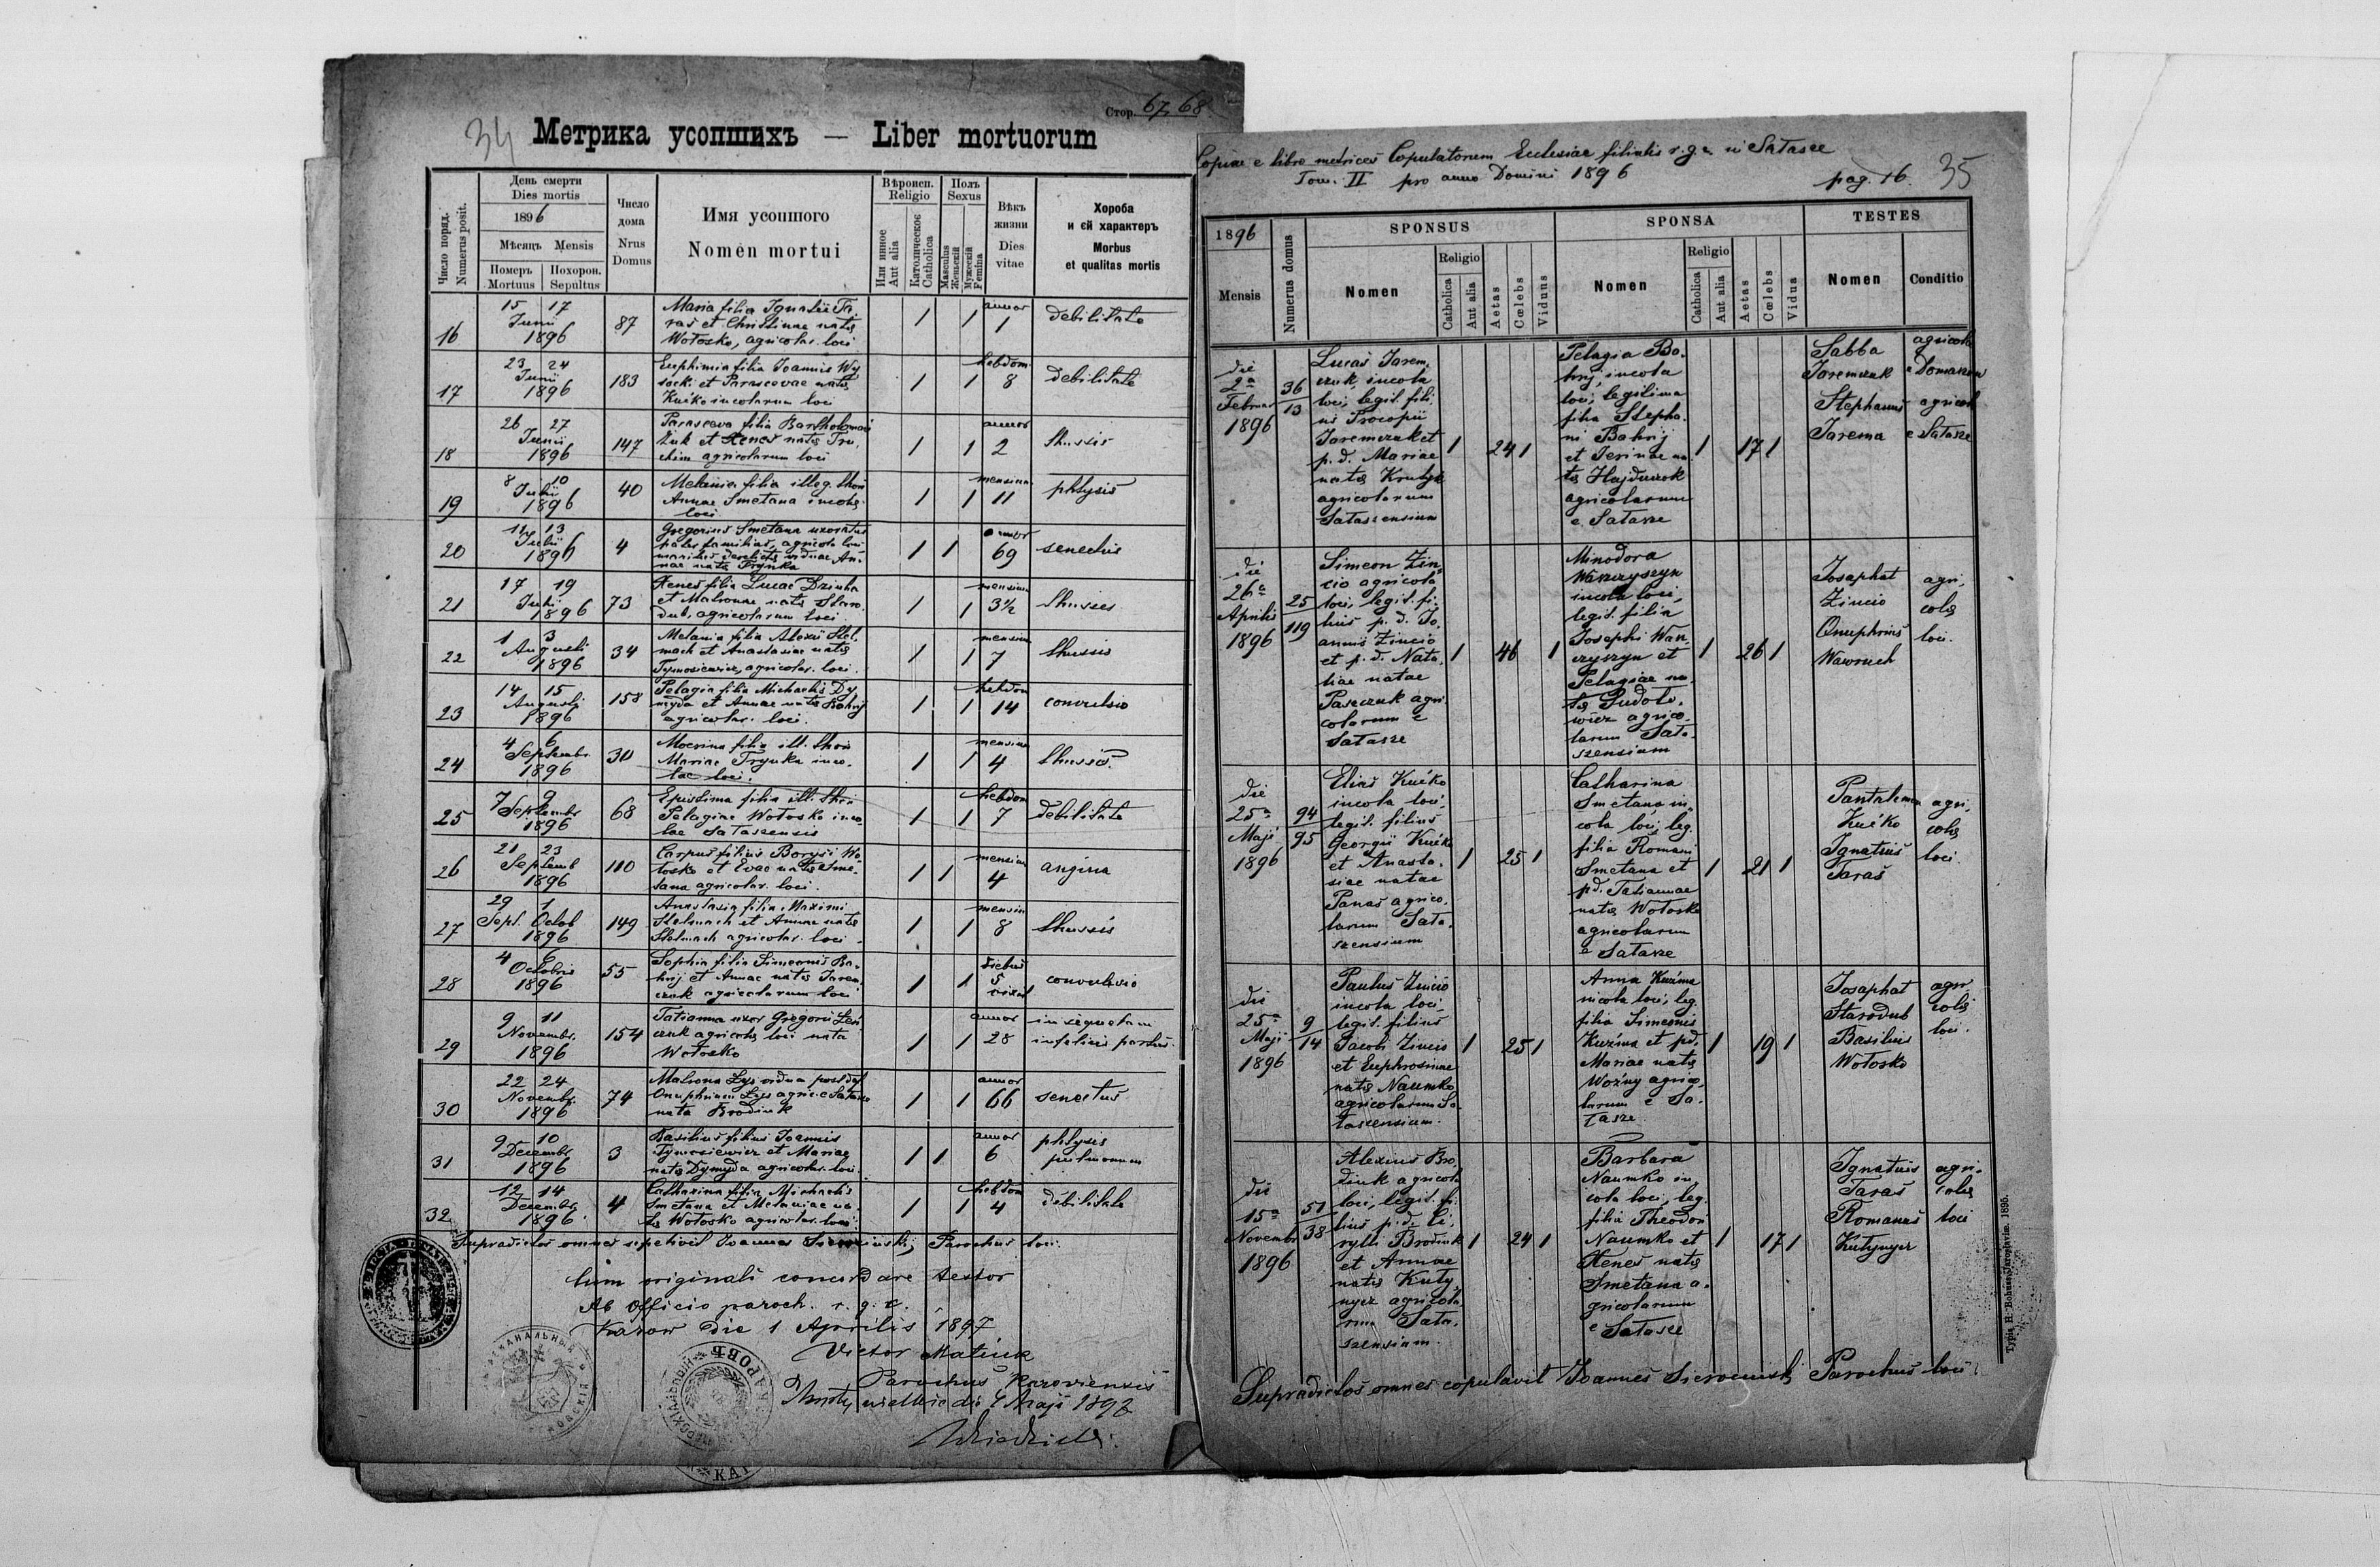 Стор. 67, 68
34 Метрика усопшихъ — Liber mortuorum
Число поряд. Numerus posit.
День смерти
Dies mortis
1896
Мѣсяцъ Mensis
Померъ Mortuus
Похорон. Sepultus
Число дома
Nrus Domus
Имя усопшого
Nomen mortui
Вѣроисп. Religio
Или инное Aut alia
Католическое Catholica
Полъ Sexus
Masculus Женьскій
Мужескій Femina
Вѣкъ жизни
Dies vitae
Хороба
и єй характеръ
Morbus
et qualitas mortis
16 15 17 Junii 1896 87
Maria filia Ignatii Ta-
ras et Christinae natae
Wołosko, agricolar. loci
1 1 annor 1 debilitate
17 23 24 Junii 1896 183
Euphimia filia Joannis Wy
socki et Parascevae natae
Kućko incolarum loci
1 1 hebdom 8 debilitate
18 26 27 Junii 1896 147
Parasceva filia Bartholomaei
Żuk et Xenes natae Tru-
chim agricolarum loci
1 1 annor 2 thussis
19 8 10 Julii 1896 40
Melania filia illeg. thori
Annae Smetana incolae
loci
1 1 mensium 11 phtysis
20 11 13 Julii 1896 4
Gregorius Smetana uxoratus
pater familias, agricola loci
maritus derelictae viduae An-
nae natae Frynka
1 1 annor 69 senectus
21 17 19 Julii 1896 73
Xenes filia Lucae Dziuba
et Matronae natae Staro-
dub, agricolarum loci
1 1 mensium 3½ thussis
22 1 3 Augusti 1896 34
Melania filia Alexii Stel-
mach et Anastasiae natae
Tymosiewicz, agricolar. loci.
1 1 mensium 7 thussis
23 14 15 Augusti 1896 158
Pelagia filia Michaelis Dy
myda et Annae natae Bahrij
agricolar. loci.
1 1 hebdom 14 convulsio
24 4 6 Septembr. 1896 30
Mocrina filia ill. thori
Mariae Frynka inco-
lae loci.
1 1 mensium 4 thussis
25 7 9 Septembr 1896 68
Epistima filia ill. thori
Pelagiae Wołosko inco-
lae Sałaszensis
1 1 hebdom 7 debilitate
26 21 23 Septemb 1896 110
Carpus filius Borysi Wo-
łosko et Evae natae Sme-
tana agricolar. loci.
1 1 mensium 4 angina
27 29 1 Sept. Octob 1896 149
Anastasia filia Maximi
Stelmach et Annae natae
Stelmach agricolar. loci
1 1 mensium 8 thussis
28 4 6 Octobris 1896 55
Sophia filia Simeonis Ba-
hrij et Annae natae Jarem-
czuk agricolarum loci
1 1 diebus 5 vixit convulsio
29 9 11 Novembr. 1896 154
Tatianna uxor Gregorii
agricolae loci nata
Wołosko
1 1 annor 28 in sequelam
infelicis partus.
30 22 24 Novembr. 1896 74
Matrona Łys vidua post def
Onuphrium Łys agric. e Sałasze
nata Brodiuk
1 1 annor 66 senectus
31 9 10 Decembr. 1896 3
Basilius filius Joannis
Tymosiewicz et Mariae
natae Dymyda agricolar. loci.
1 1 annor 6 phtysis
pulmonum
32 12 14 Decembr. 1896 4
Catharina filia Michaelis
Smetana et Melaniae na-
tae Wołosko agricolar. loci.
1 1 hebdom 4 debilitate
Supradictos omnes sepelivit Joannes Sierociński, Parochus loci.
Cum originali concordare testor
Ab Officio paroch. r. g. c.
Karow die 1 Aprilis 1897
Victor Matiuk
Parochus Karoviensis
die Maji 1897
Copiae e libro metrices Copulatorum Ecclesiae filialis r. g. c. in Sałasze
Tom. II pro anno Domini 1896 pag. 16. 35
1896
Mensis
Numerus domus
SPONSUS
Nomen
Religio
Catholica
Aut alia
Aetas
Cœlebs
Viduus
SPONSA
Nomen
Religio
Catholica
Aut alia
Aetas
Cœlebs
Vidus
TESTES
Nomen
Conditio
die 2a Februar 1896
36/13
Lucas Jarem-
czuk, incola
loci, legit. fili-
us Procopii
Jaremczuk et
p. d. Mariae
natae
agricolarum
Sałaszensium
1 24 1
Pelagia Ba-
hrij, incola
loci, legitima
filia Stepha-
ni Bahrij
et Irinae na-
tae Hajduczok
agricolarum
e Sałasze
1 17 1
Sabba
Jaremczuk
Stephanus
Jarema
agricola
e Domaszow
agricola
e Sałasze
die 26a Aprilis 1896
25/119
Simeon Zin-
cio agricola
loci, legit. fi-
lius p. d. Jo-
annis Zincio
et p. d. Nata-
liae natae
Paszczuk agri-
colarum e
Sałasze
1 46 1
Minodora
Wanczyszyn
incola loci,
legit. filia
Josephi Wan-
czyszyn et
Pelagiae na-
tae Sudoło-
wicz agrico-
larum Sała-
szensium
1 26 1
Josaphat
Zincio
Onuphrius
Wawruch
agri-
colae
loci.
die 25a Maji 1896
94/95
Elias Kućko
incola loci,
legit. filius
Georgii Kućko
et Anasta-
siae natae
Panas agrico-
larum Sała-
szensium
1 25 1
Catharina
Smetana in-
cola loci, leg.
filia Romani
Smetana et
p.d. Tatiannae
natae Wołosko
agricolarum
e Sałasze
1 21 1
Pantalemon
Kućko
Ignatius
Taras
agri-
colae
loci.
die 25a Maji 1896
9/14
Paulus Zincio
incola loci,
legit. filius
Jacobi Zincio
et Euphrosinae
natae Naumko
agricolarum Sa-
łaszensium.
1 25 1
Anna Kuźma
incola loci, leg.
filia Simeonis
Kuzma et p.d.
Mariae natae
Woźny agrico-
larum e Sa-
łasze
1 19 1
Josaphat
Starodub
Basilius
Wołosko
agri-
colae
loci.
die 15a Novembr 1896
51/38
Alexius Bro-
diuk agricola
loci, legit. fi-
lius p. d. Ci-
rylli Brodiuk
et Annae
natae Kuty-
nycz agricola-
rum Sała-
szensium.
1 24 1
Barbara
Naumko in-
cola loci, leg.
filia Theodori
Naumko et
Xenes natae
Smetana a-
gricolarum
e Sałasze
1 17 1
Ignatius
Taras
Romanus
Kutynycz
agri-
colae
loci
Supradictos omnes copulavit Joannes Sierociński, Parochus loci.
Typis H. Bohuss Jaroslaviae. 1895.